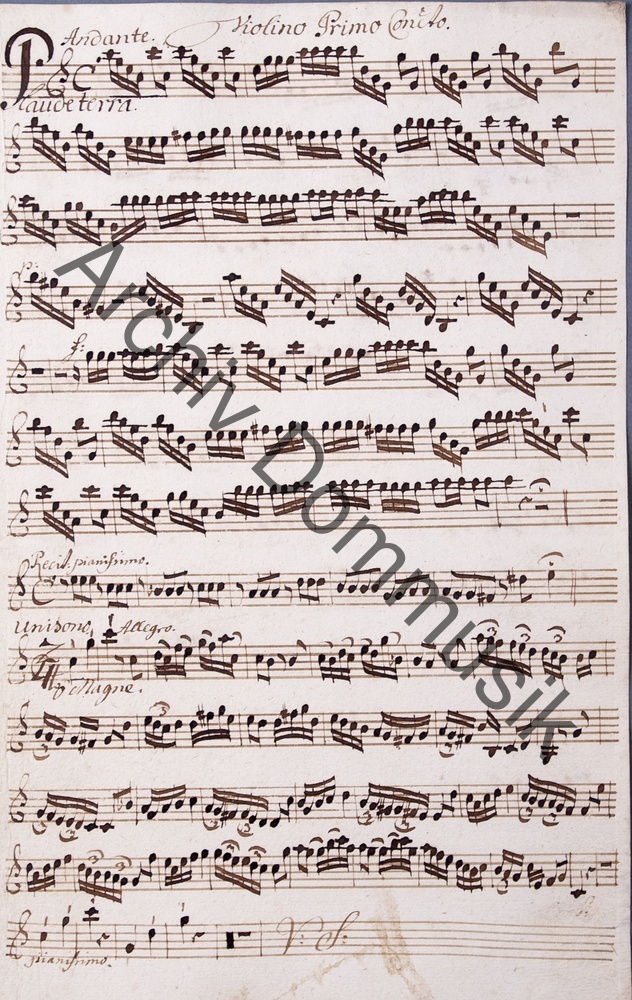 Violino Primo Conc.to.
Andante.
Plaude terra.
p:
f:
Recit. pianissimo.
Unisono, Allegro.
o Magne.
pianissimo.
V: S:
Archiv Dommusik